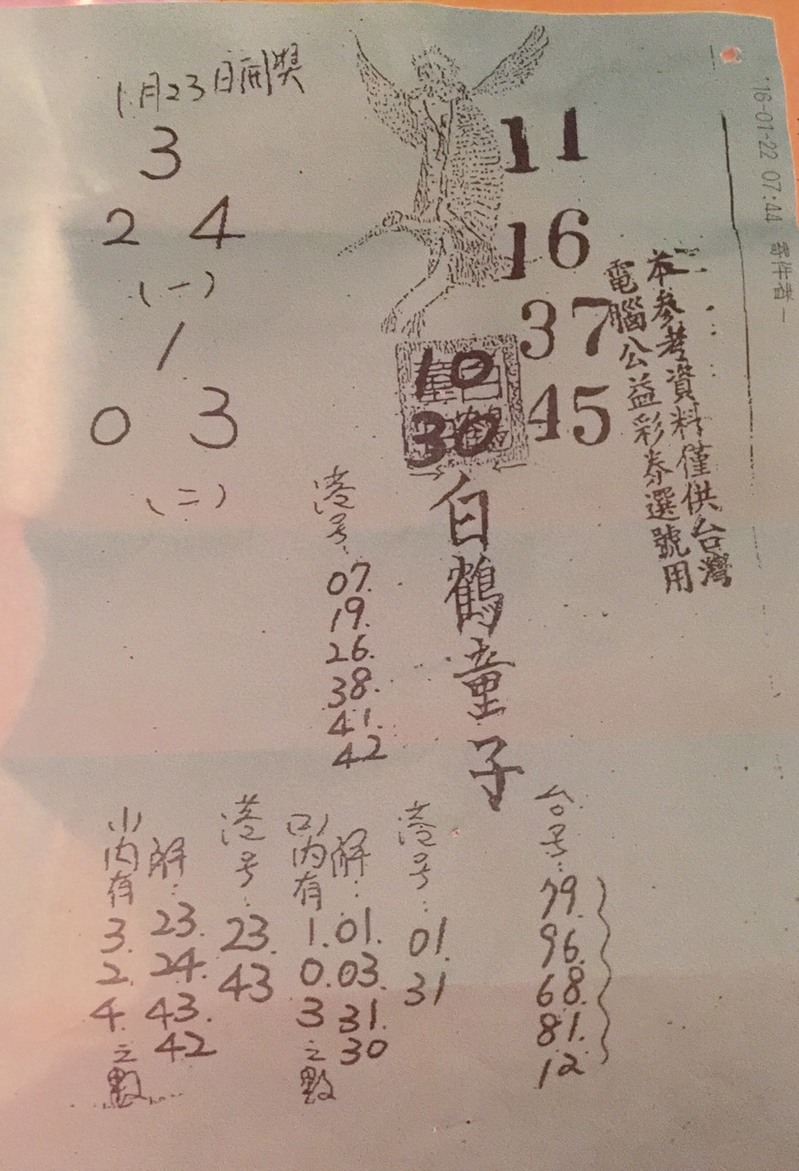 1月23日開獎
3
2 4
(一)
1
0 3
(二)
11
16
37
45
10
30
'16-01-22 07:44 寄件者-
本參考資料僅供台灣
電腦公益彩券選號用
白鶴童子
港号:
07.
19.
26.
38.
41.
42
台号:
79.
96.
68.
81.
12
港号:
01.
31
解:
01.
03.
31.
30
(2)内有
1.
0.
3
之數
港号:
23.
43
解:
23.
24.
43.
42
(1)内有
3.
2.
4.
之數